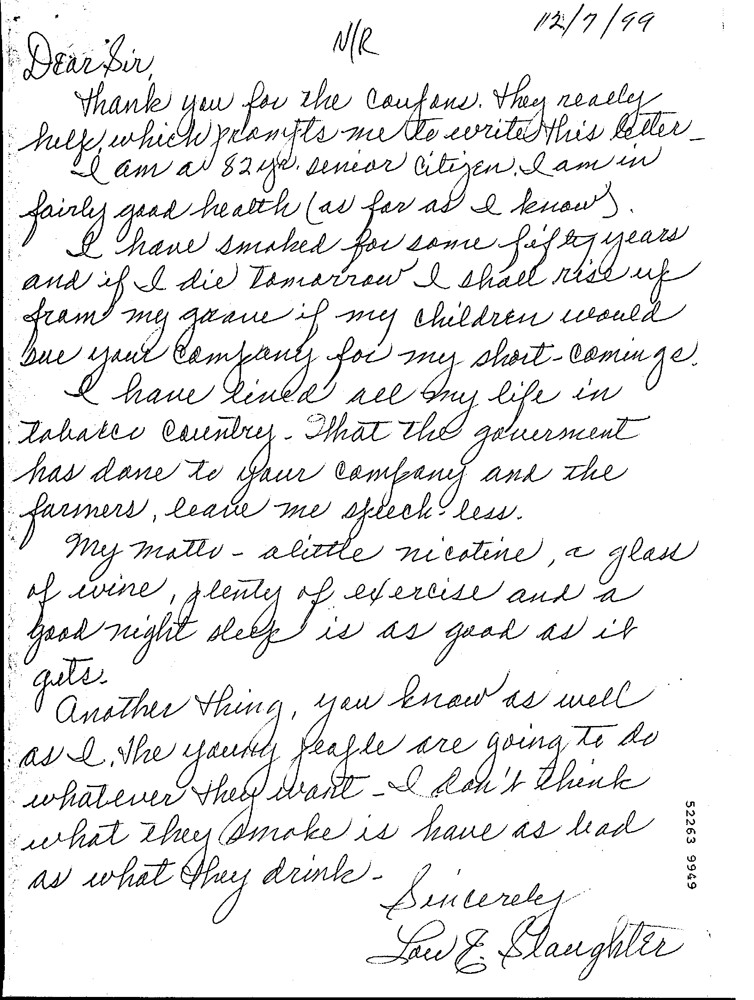 12/7/99
N/R
Dear Sir,
Thank you for the coupons. They really
help, which prompts me to write this letter -
I am a 82 yr. senior citizen. I am in
fairly good health (as far as I know).
I have smoked for some fifty years
and if I die tomorrow I shall rise up
from my grave if my children would
sue your company for my short-comings.
I have lived all my life in
tobacco country - What the goverment
has done to your company and the
farmers, leave me speech-less.
My motto - alittle nicotine, a glass
of wine, plenty of exercise and a
good night sleep is as good as it
gets.
Another thing, you know as well
as I, the young people are going to do
whatever they want - I don't think
what they smoke is have as bad
as what they drink -
Sincerely
Lou E. Slaughter
52263 9949